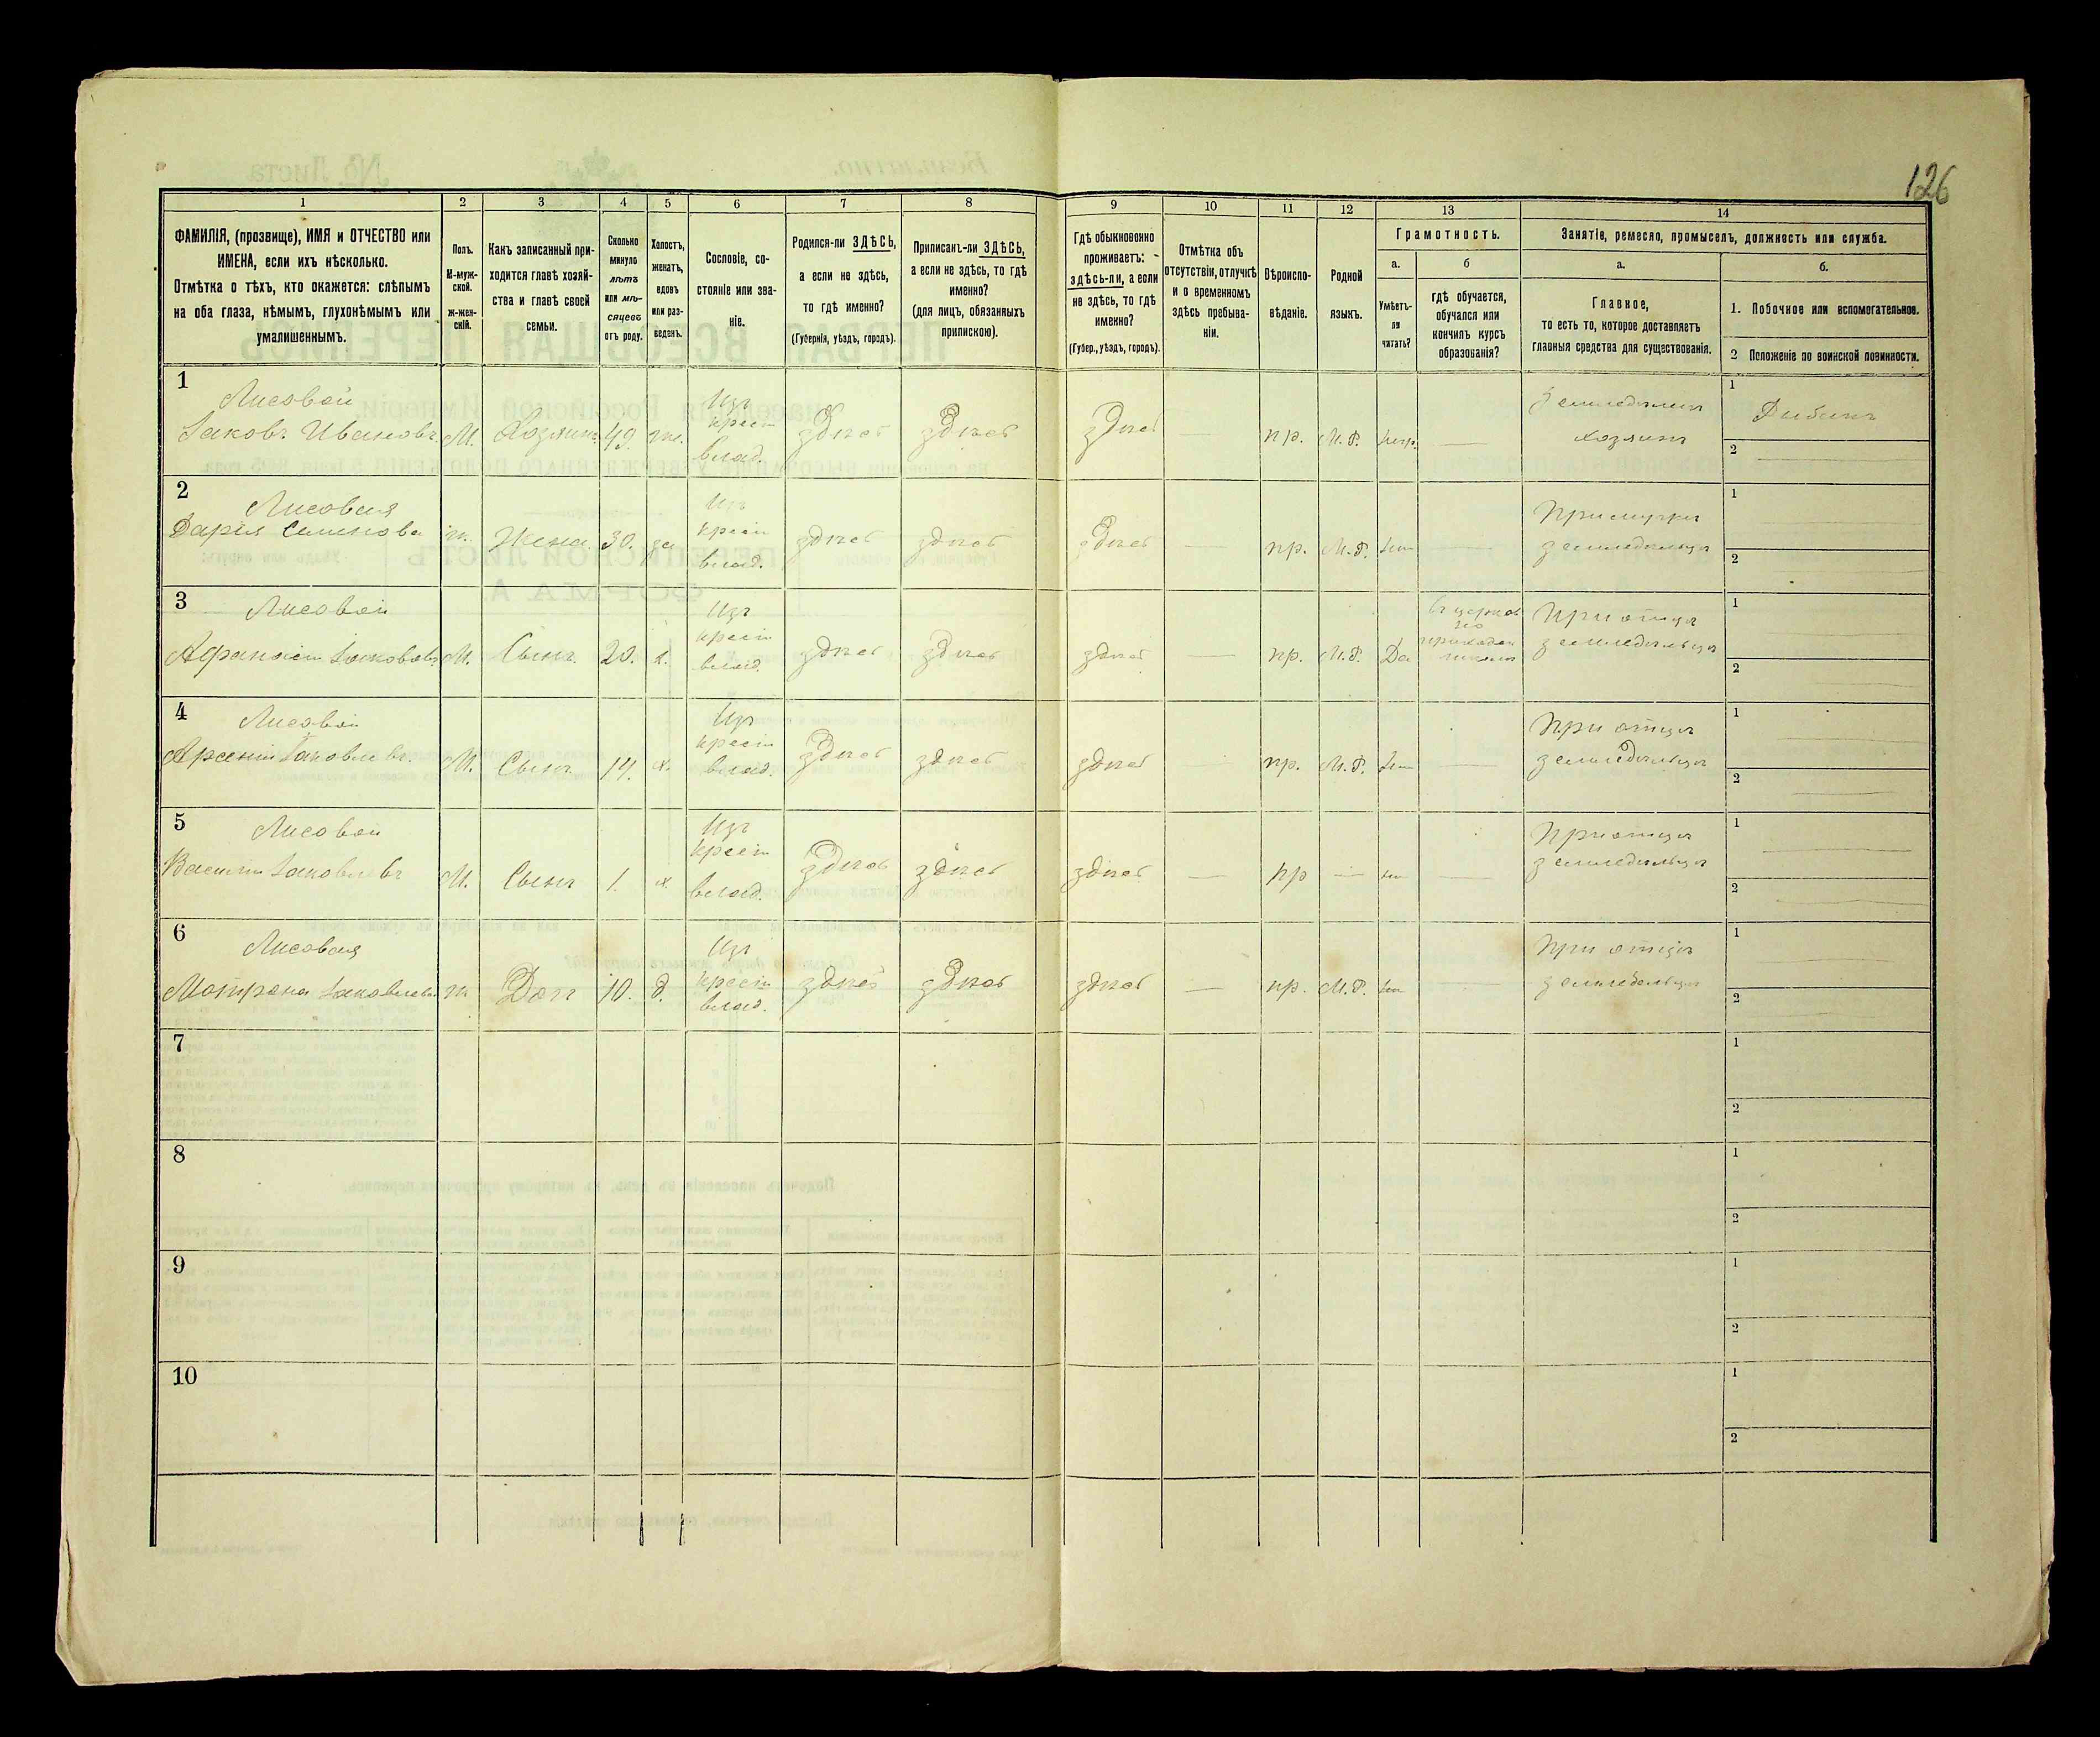 126
1
2
3
4
5
6
7
8
9
10
11
12
13
14
ФАМИЛІЯ, (прозвище), ИМЯ и ОТЧЕСТВО или
ИМЕНА, если ихъ нѣсколько.
Отмѣтка о тѣхъ, кто окажется: слѣпымъ
на оба глаза, нѣмымъ, глухонѣмымъ или
умалишеннымъ.
Полъ.
М-муж-
ской.
Ж-жен-
скій.
Какъ записанный при-
ходится главѣ хозяй-
ства и главѣ своей
семьи.
Сколько
минуло
лѣтъ
или мѣ-
сяцевъ
отъ роду.
Холостъ,
женатъ,
вдовъ
или раз-
веденъ.
Сословіе, со-
стояніе или зва-
ніе.
Родился-ли ЗДѢСЬ,
а если не здѣсь,
то гдѣ именно?
(Губернія, уѣздъ, городъ).
Приписанъ-ли ЗДѢСЬ,
а если не здѣсь, то гдѣ
именно?
(для лицъ, обязанныхъ
припискою).
Гдѣ обыкновенно
проживаетъ:
здѣсь-ли, а если
не здѣсь, то гдѣ
именно?
(Губер., уѣздъ, городъ).
Отмѣтка объ
отсутствіи, отлучкѣ
и о временномъ
здѣсь пребыва-
ніи.
Вѣроиспо-
вѣданіе.
Родной
языкъ.
Грамотность.
а.
Умѣетъ-
ли
читать?
б
гдѣ обучается,
обучался или
кончилъ курсъ
образованія?
Занятіе, ремесло, промыселъ, должность или служба.
а.
Главное,
то есть то, которое доставляетъ
главныя средства для существованія.
б.
1. Побочное или вспомогательное.
2 Положеніе по воинской повинности.
1
Лисовой
Іаковъ Ивановъ
М.
Хозяинъ
49
ж.
Изъ
крест
влад.
здѣсь
здѣсь
здѣсь
—
пр.
М. Р.
—
Земледѣлецъ
хозяинъ
1
2
2
Лисовая
Дарія Семенова
ж.
Жена
30.
за
Изъ
крест
влад.
здѣсь
здѣсь
здѣсь
—
пр.
М. Р.
—
При мужѣ
земледѣльцѣ
1
2
3
Лисовой
Афанасій Іаковлевъ
М.
Сынъ
20.
х.
Изъ
крест
влад.
здѣсь
здѣсь
здѣсь
—
пр.
М. Р.
Да
При отцѣ
земледѣльцѣ
1
2
4
Лисовой
Арсеній Іаковлевъ
М.
Сынъ
14.
х.
Изъ
крест
влад.
здѣсь
здѣсь
здѣсь
—
пр.
М. Р.
—
При отцѣ
земледѣльцѣ
1
2
5
Лисовой
Василій Іаковлевъ
М.
Сынъ
1.
х.
Изъ
крест
влад.
здѣсь
здѣсь
здѣсь
—
пр
—
—
При отцѣ
земледѣльцѣ
1
2
6
Лисовая
Мотрона Іаковлева
ж
Доч
10.
д.
Изъ
крест
влад.
здѣсь
здѣсь
здѣсь
—
пр.
М. Р.
—
При отцѣ
земледѣльцѣ
1
2
7
1
2
8
1
2
9
1
2
10
1
2